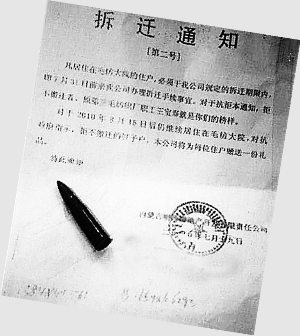 拆迁通知
[第二号]
凡居住在毛纺大院的住户，必须于我公司规定的拆迁期限内，
7月31日前来我公司办理拆迁手续事宜。对于抗拒本通知，拒
不搬迁者，原第三毛纺织厂职工王宝寿就是你们的榜样。
对于2010年8月15日后仍继续居住在毛纺大院，对抗
政府指示，拒不搬迁的住户，本公司将为每位住户赠送一份礼
品。
特此通知
内蒙古 有限责任公司
年七月二十九日